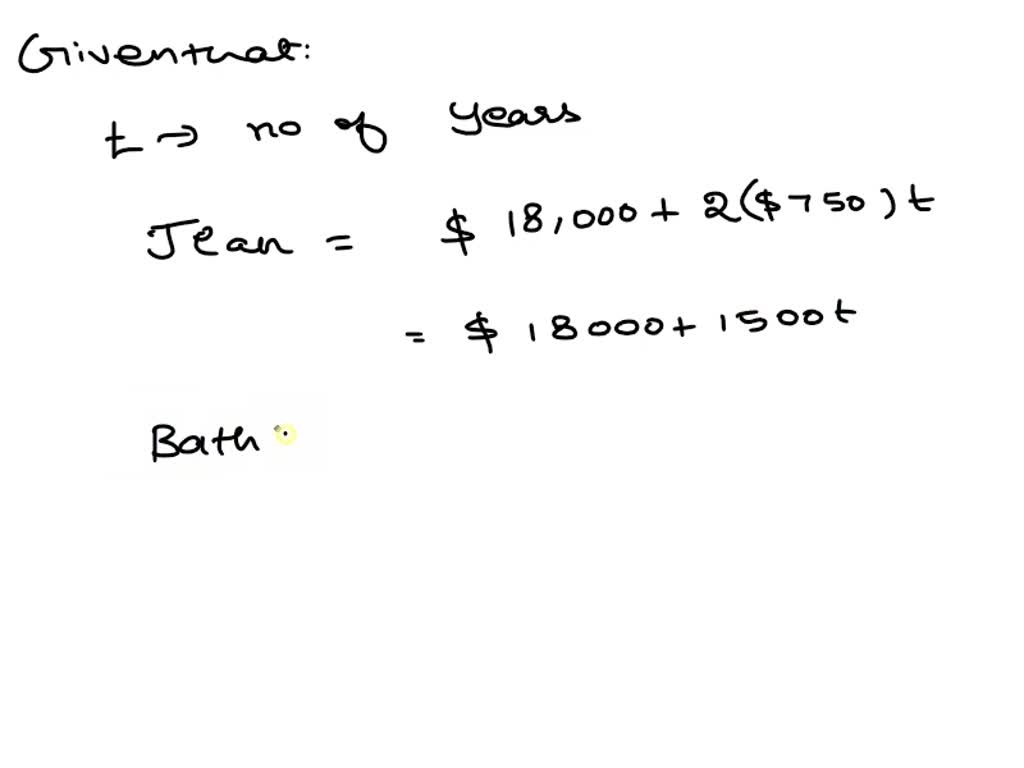 Given that:
t → no of years
Jean = $ 18,000 + 2($750)t
= $ 18000 + 1500t
Bath